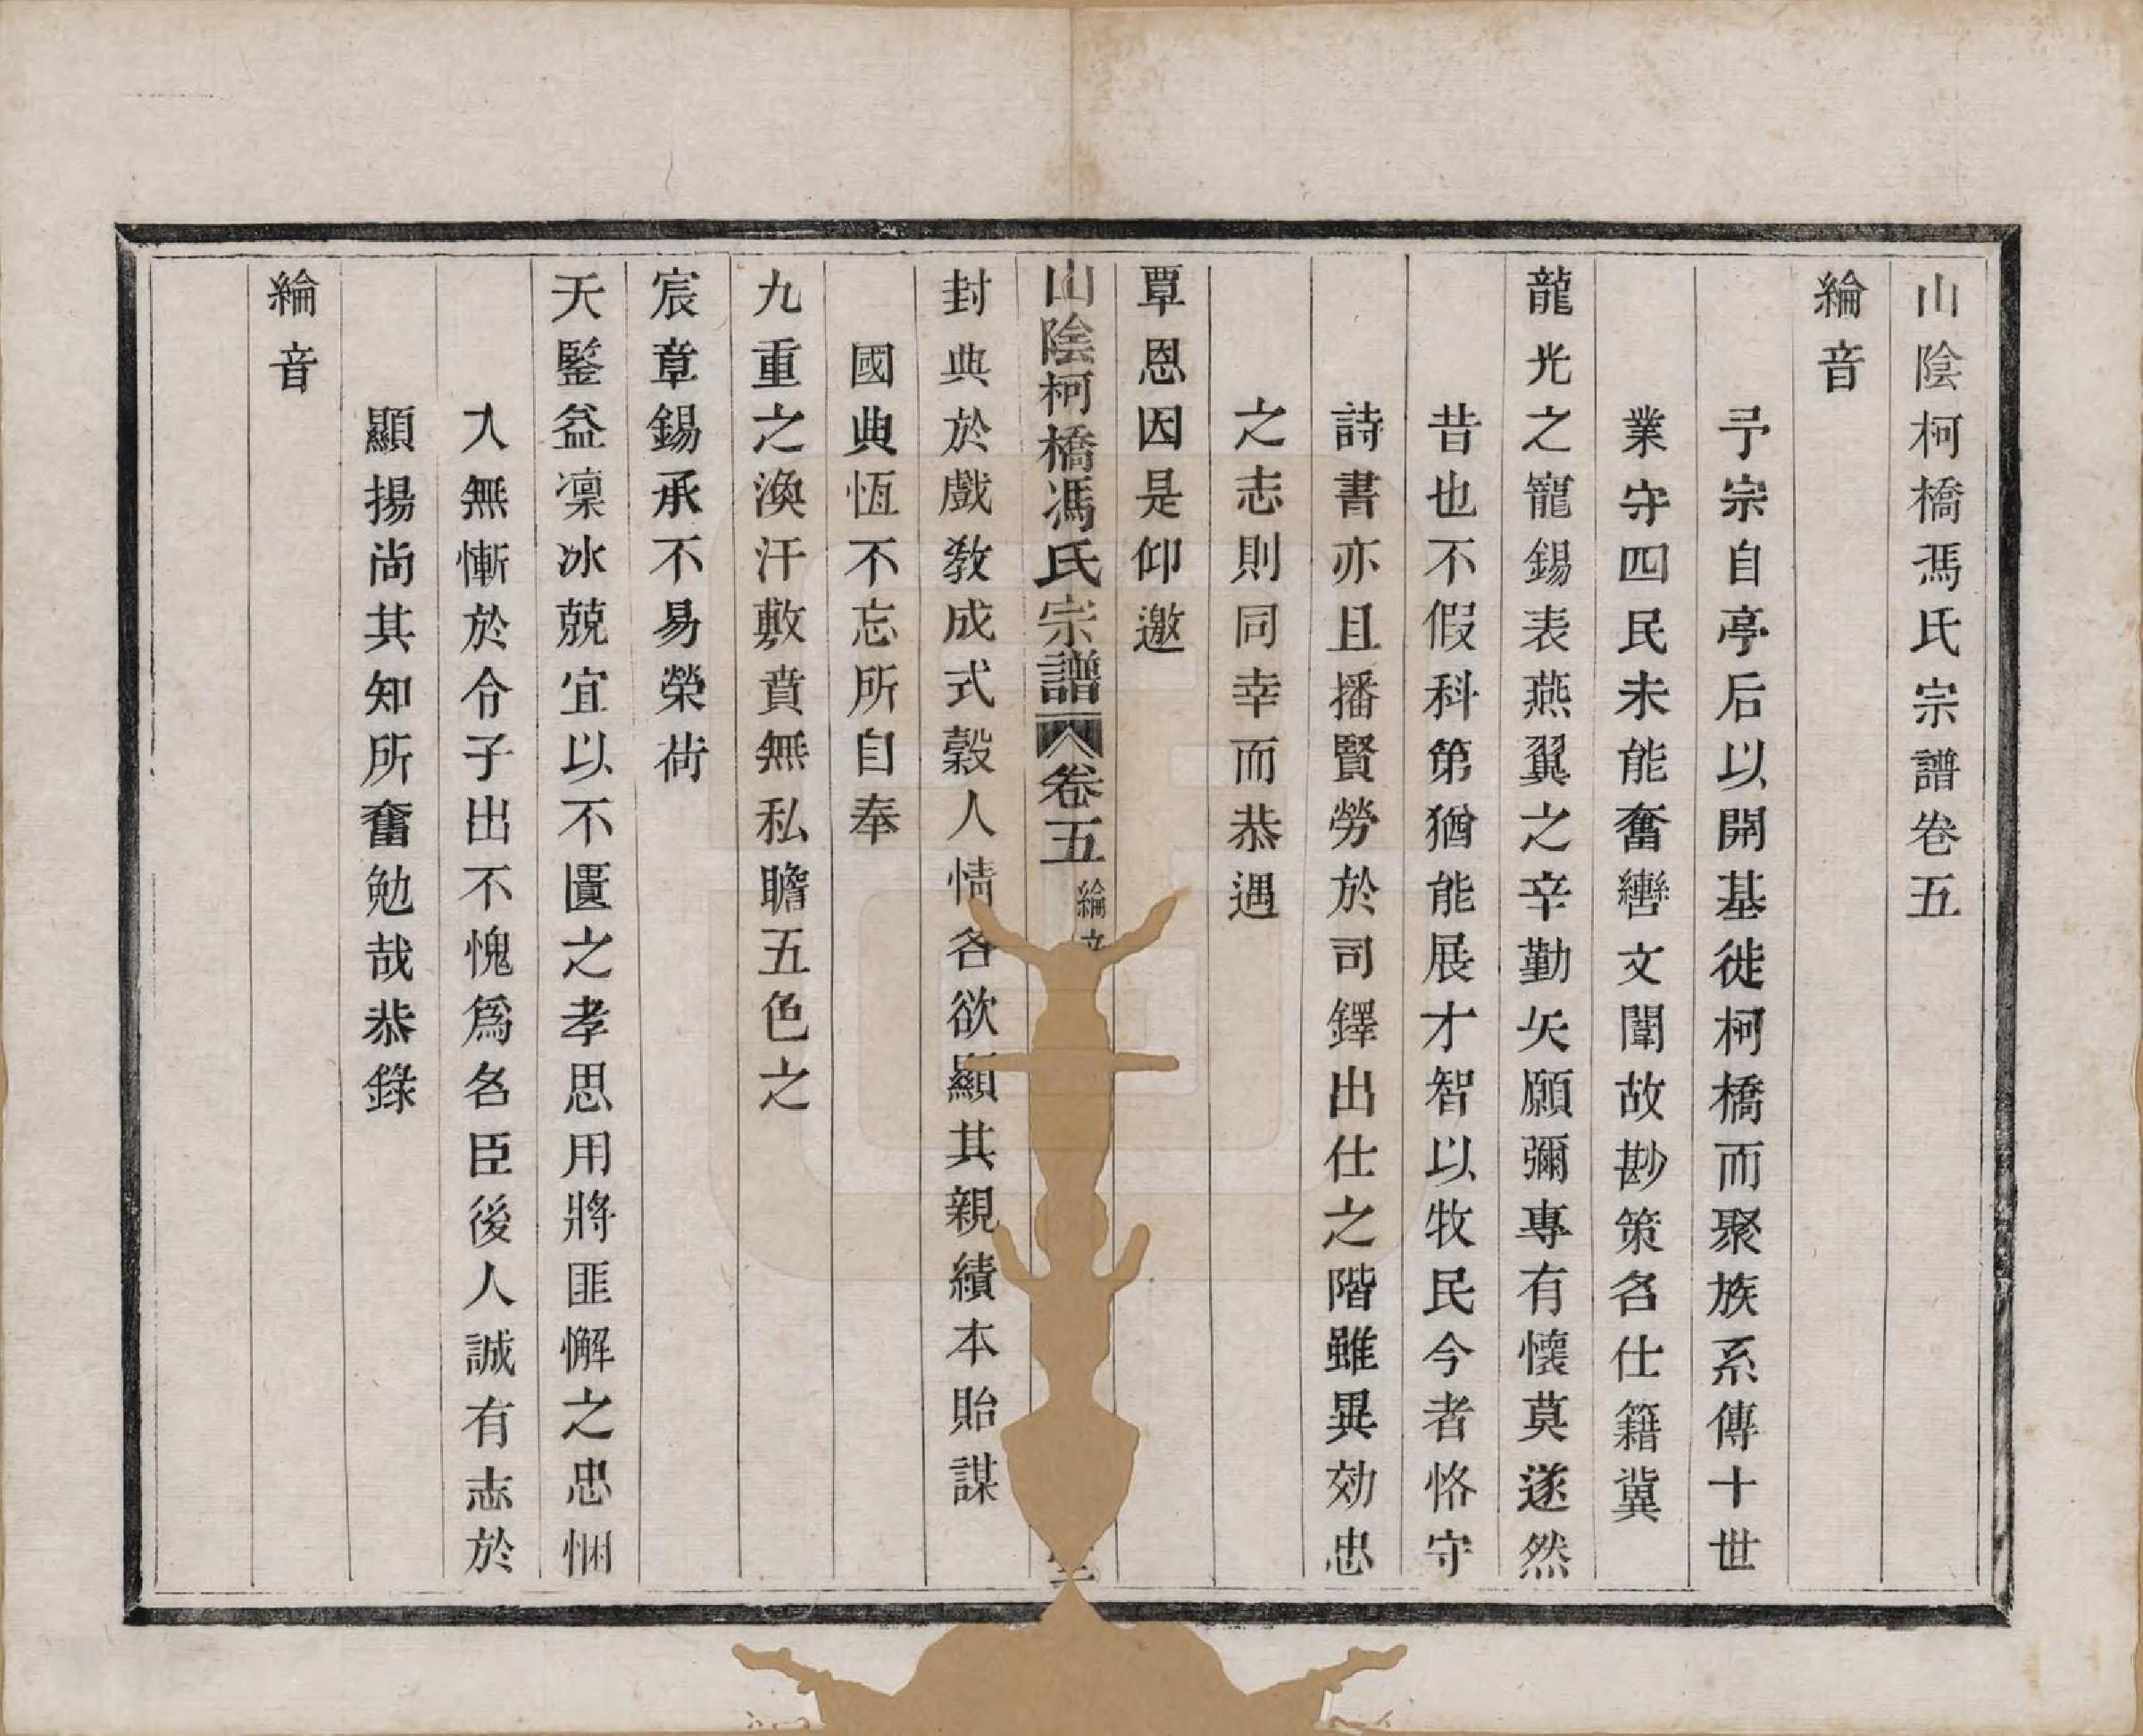 山陰柯橋馮氏宗譜卷五
綸音
予宗自亭后以開基徙柯橋而聚族系傳十世
業守四民未能奮轡文闈故尠策名仕籍冀
龍光之寵錫表燕翼之辛勤矢願彌專有懷莫遂然
昔也不假科第猶能展才智以牧民今者恪守
詩書亦且播賢勞於司鐸出仕之階雖異効忠
之志則同幸而恭遇
覃恩因是仰邀
山陰柯橋馮氏宗譜 卷五 綸
封典於戲教成式穀人情各欲顯其親績本貽謀
國典恆不忘所自奉
九重之渙汗敷賁無私瞻五色之
宸章錫承不易榮荷
天鑒益凜冰兢宜以不匱之孝思用將匪懈之忠悃
入無慚於令子出不愧爲名臣後人誠有志於
顯揚尚其知所奮勉哉恭錄
綸音